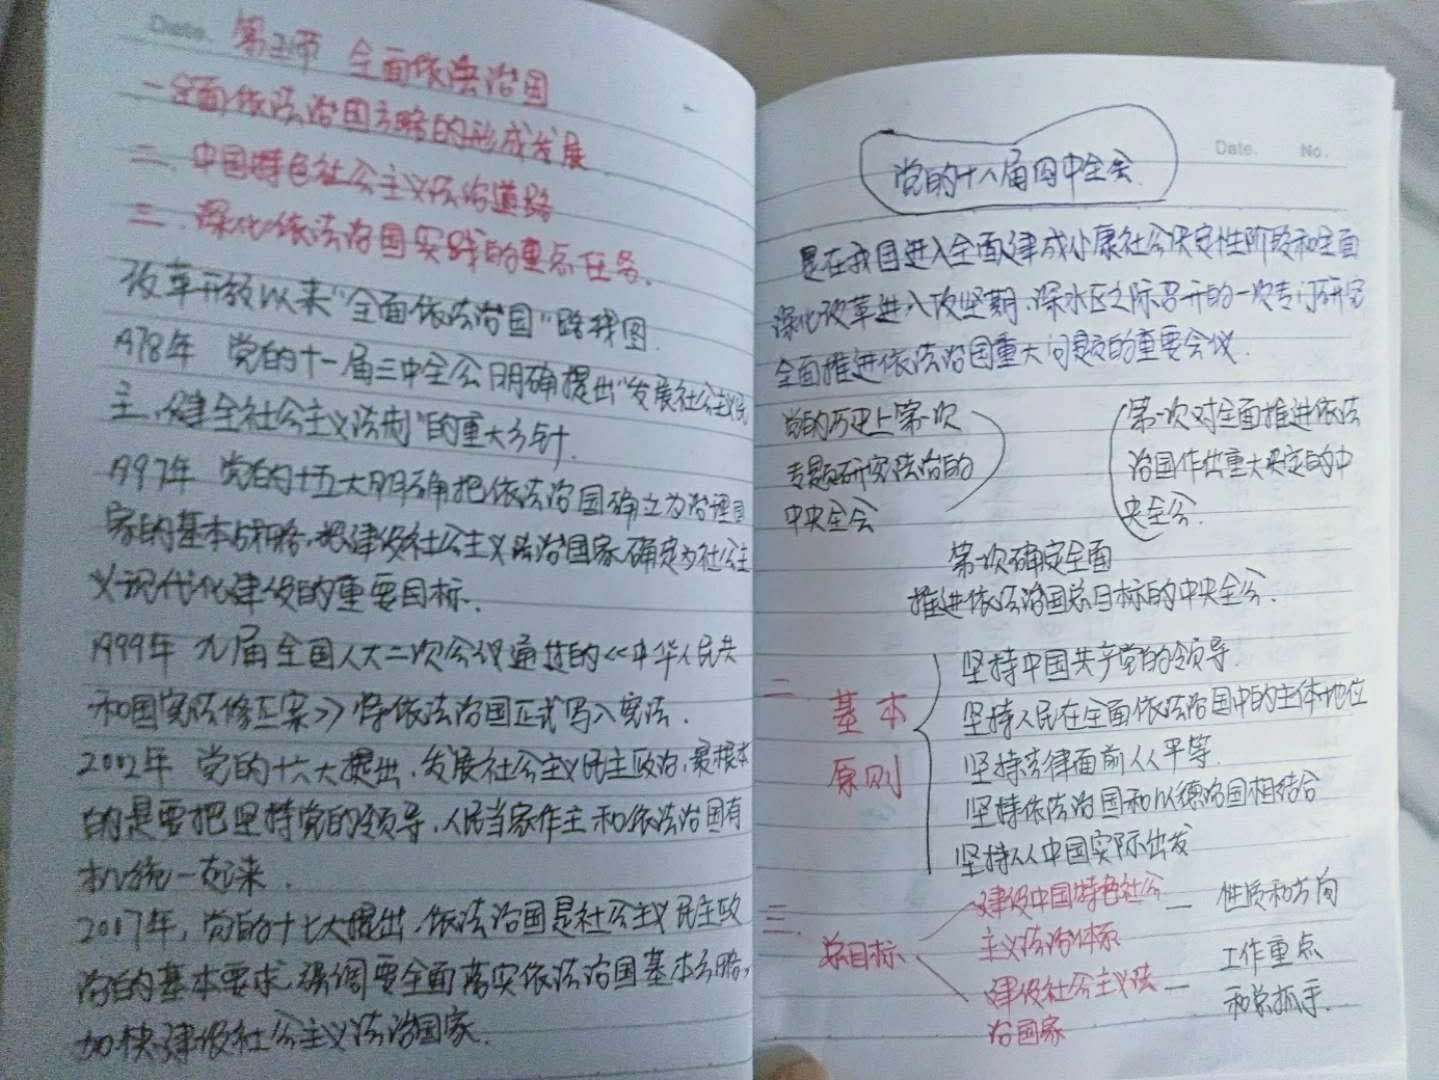 Date.
第三节 全面依法治国
一全面依法治国方略的形成发展
二、中国特色社会主义法治道路
三、深化依法治国实践的重点任务。
改革开放以来“全面依法治国”路线图.
1978年 党的十一届三中全会明确提出“发展社会主义民
主,健全社会主义法制”的重大方针.
1997年 党的十五大明确把依法治国确立为治理国
家的基本方略,把建设社会主义法治国家确定为社会主
义现代化建设的重要目标.
1999年 九届全国人大二次会议通过的《中华人民共
和国宪法修正案》将依法治国正式写入宪法.
2002年 党的十六大提出,发展社会主义民主政治,最根本
的是要把坚持党的领导,人民当家作主和依法治国有
机统一起来.
2017年,党的十七大提出,依法治国是社会主义民主政
治的基本要求,强调要全面落实依法治国基本方略,
加快建设社会主义法治国家.
Date. No.
党的十八届四中全会
是在我国进入全面建成小康社会决定性阶段和全面
深化改革进入攻坚期、深水区之际召开的一次专门研究
全面推进依法治国重大问题的重要会议.
党的历史上第一次
专题研究法治的
中央全会
第一次对全面推进依法
治国作出重大决定的中
央全会.
第一次确定全面
推进依法治国总目标的中央全会.
二 基本
原则
坚持中国共产党的领导.
坚持人民在全面依法治国中的主体地位
坚持法律面前人人平等.
坚持依法治国和以德治国相结合
坚持从中国实际出发
三. 总目标
建设中国特色社会
主义法治体系
— 性质和方向
建设社会主义法
治国家
— 工作重点
和总抓手.